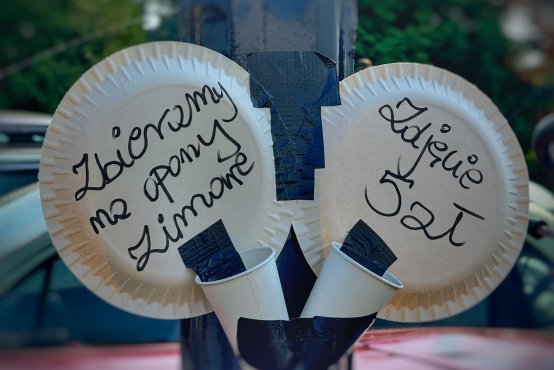 Zbieramy
na opony
zimowe
Zdjęcie
5 zł